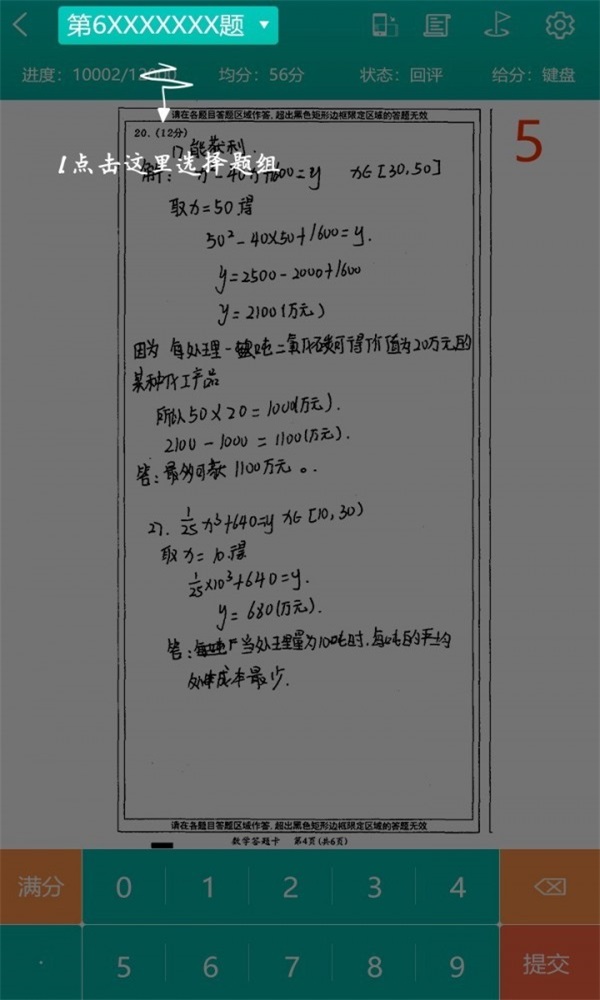 第6XXXXXXX题
进度：10002/12000 均分：56分 状态：回评 给分：键盘
请在各题目答题区域作答，超出黑色矩形边框限定区域的答题无效
20．(12分)
1点击这里选择题组
5
1) 能获利．
解： x²-40x+1600=y x∈[30,50]
取x=50得
50²-40×50+1600=y.
y=2500-2000+1600
y=2100(万元)
因为 每处理一吨二氧化碳可得价值为20万元的
某种化工产品
所以50×20=1000(万元).
2100-1000=1100(万元).
答：最多可获1100万元。
27. 1/25 x³+640=y x∈[10,30)
取x=10.得
1/25×10³+640=y.
y=680(万元).
答：当处理量为10吨时，每吨的平均
处理成本最少.
请在各题目答题区域作答，超出黑色矩形边框限定区域的答题无效
数学答题卡 第4页(共6页)
满分 0 1 2 3 4
. 5 6 7 8 9 提交